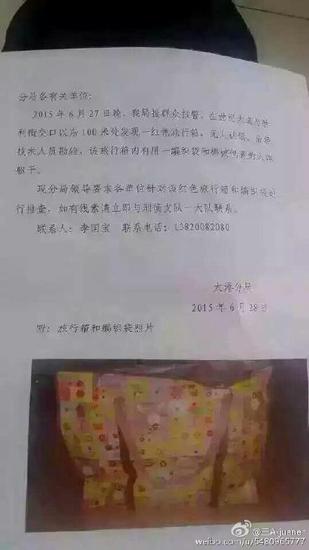 分局各有关单位:
2015年6月27日晚，我局接群众报警，在世纪大道与胜
利街交口以东100米处发现一红色旅行箱，无人认领，后经
技术人员勘验，该旅行箱内有用一编织袋和棉被包裹的人体
躯干。
现分局领导要求各单位针对该红色旅行箱和编织袋进
行排查，如有线索请立即与刑侦支队一大队联系。
联系人：李国宝 联系电话：13820082080
大港分局
2015年6月28日
附：旅行箱和编织袋照片
@三A-juanen
weibo.com/u/5480965777